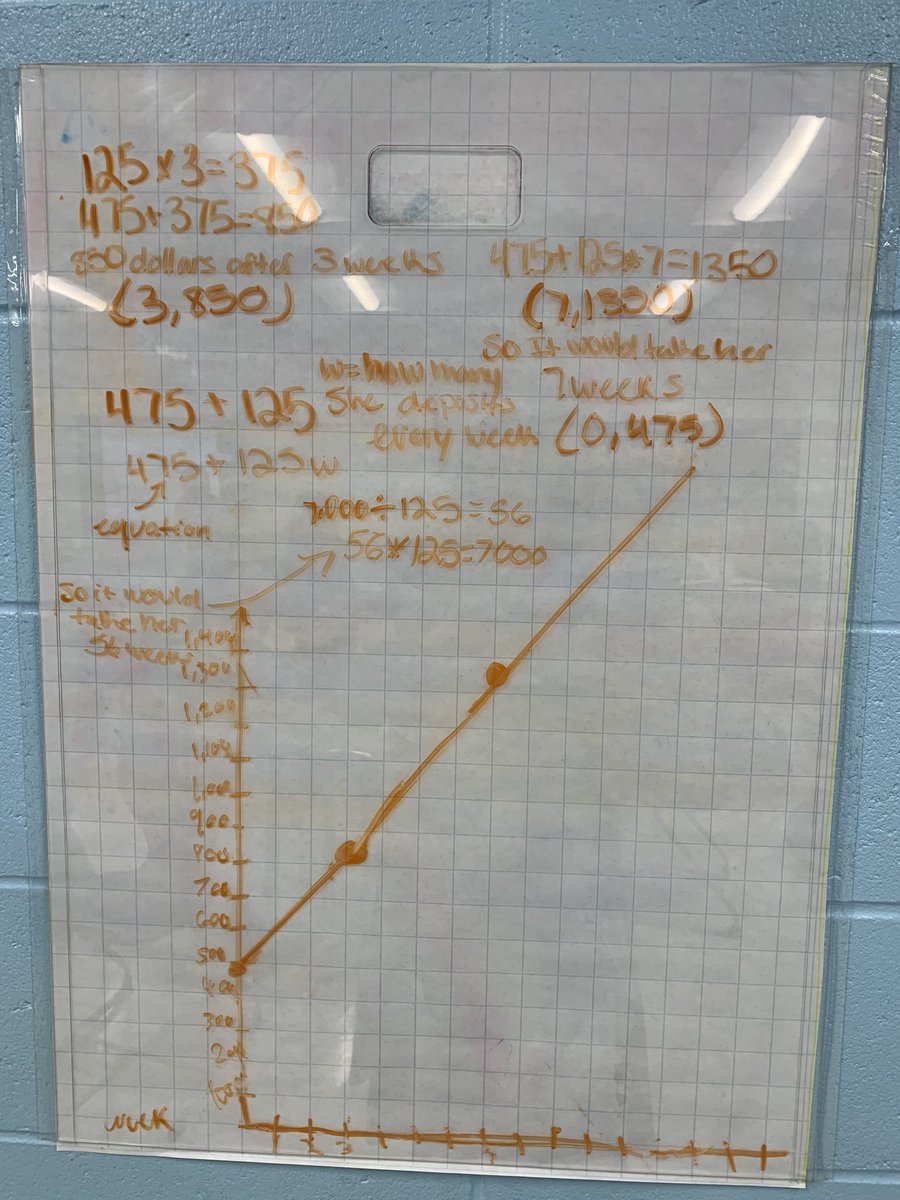 125 × 3 = 375
475 + 375 = 850
850 dollars after 3 weeks
(3, 850)
475 + 125 * 7 = 1350
(7, 1350)
So it would take her
7 weeks
(0, 475)
w = how many
she deposits
every week
475 + 125
475 + 125w
equation
7,000 ÷ 125 = 56
56 * 125 = 7000
So it would
take her
56 weeks
1,400
1,300
1,200
1,100
1,000
900
800
700
600
500
400
300
200
100
week
2
3
7